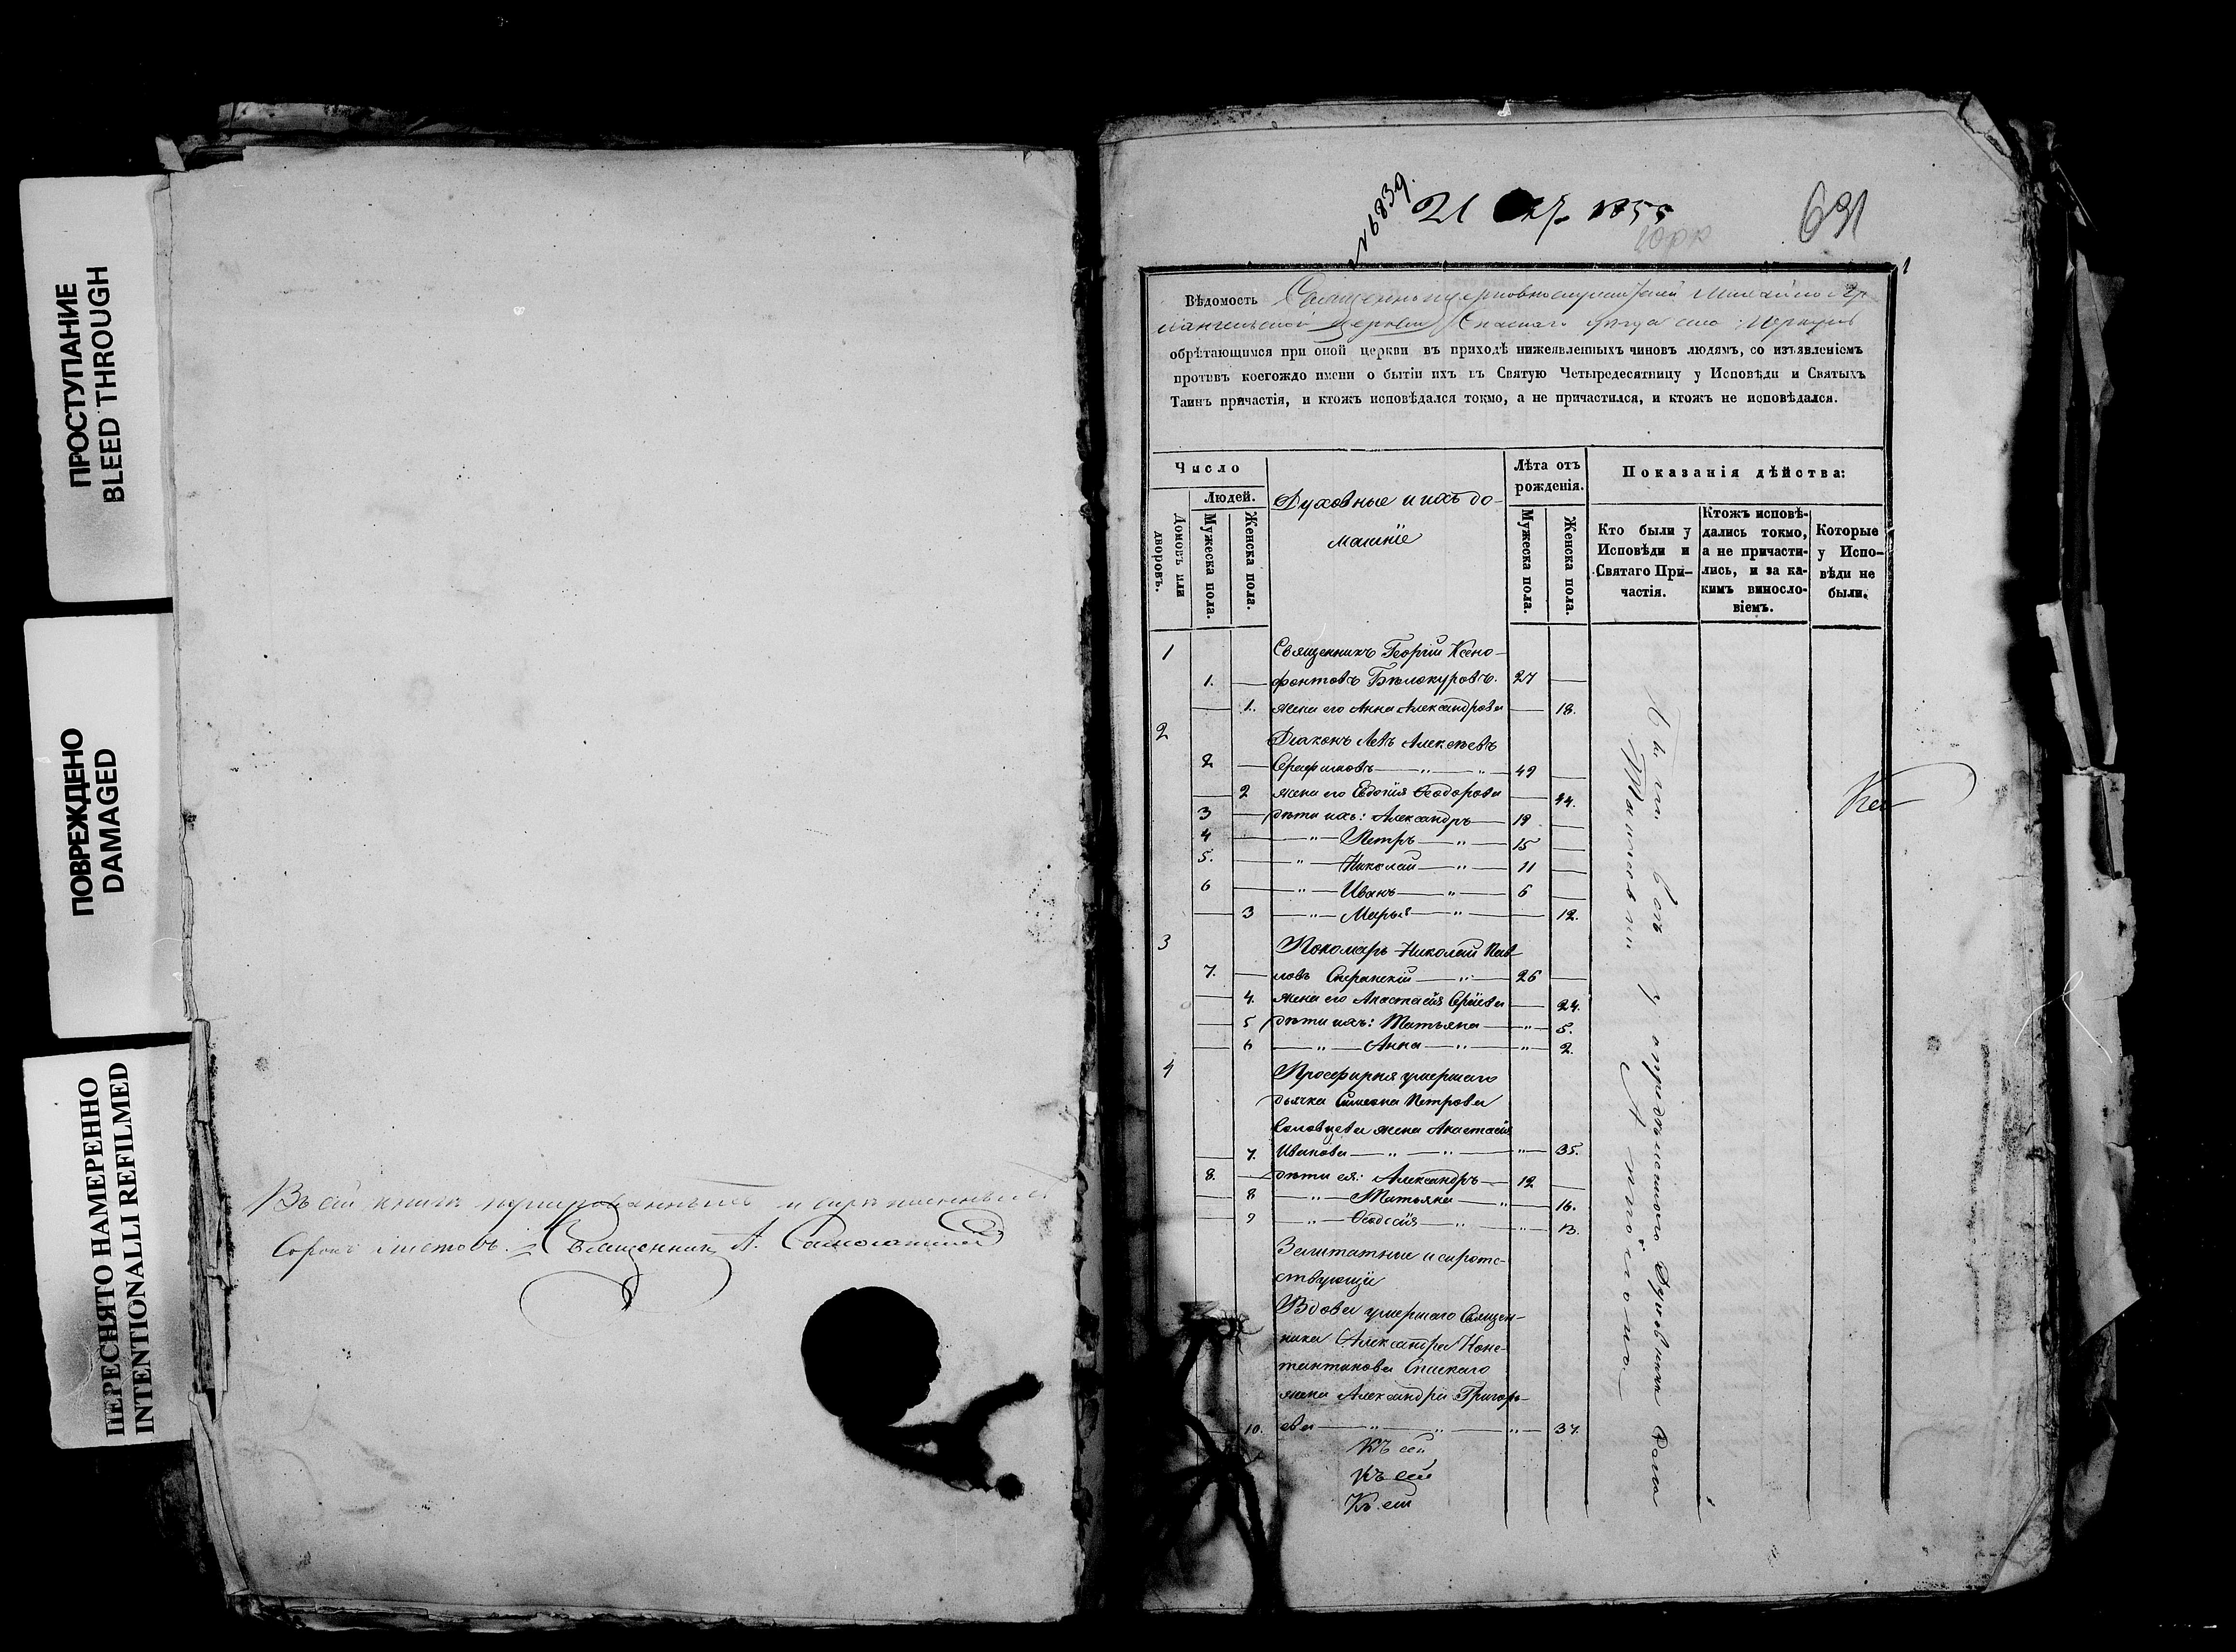 ПРОСТУПАНИЕ
BLEED THROUGH
ПОВРЕЖДЕНО
DAMAGED
ПЕРЕСНЯТО НАМЕРЕННО
INTENTIONALLI REFILMED
Въ сей книгѣ
Сорокъ листовъ. Священникъ А.
№ 6839.
21 1855
631
Вѣдомость Священноцерковнослужителей Михайло Ар
хангельской церкви Спаскаго уѣзда села
обрѣтающимся при оной церкви въ приходѣ нижеявленныхъ чиновъ людямъ, со изъявленіемъ
противъ коегождо имени о бытіи ихъ въ Святую Четыредесятницу у Исповѣди и Святыхъ
Таинъ причастія, и ктожъ исповѣдался токмо, а не причастился, и ктожъ не исповѣдался.
Число
Домовъ или дворовъ.
Людей.
Мужеска пола.
Женска пола.
Духовные и ихъ до-
машніе
Лѣта отъ рожденія.
Мужеска пола.
Женска пола.
Показанія дѣйства:
Кто были у Исповѣди и Святаго При-
частія.
Ктожъ исповѣ-
дались токмо,
а не причасти-
лись, и за ка-
кимъ винosло-
віемъ.
Которые
у Испо-
вѣди не
были.
1 Священникъ Георгій Ксено-
1. фонтовъ Бѣлокуровъ. 27
1. жена его Анна Александрова 18.
2 Діаконъ Левъ Алексѣевъ
2 Серафимовъ 49
2 жена его Евдокія Ѳеодорова 44.
3 дѣти ихъ: Александръ 19
4 Петръ 15
5. Николай 11
6 Иванъ 6
3 Марья 12.
3 Пономарь Николай Пав
7. ловъ Сперанскій 26
4. жена его Анастасія Сергіева 24.
5 дѣти ихъ: Татьяна 5.
6 Анна 2.
4 Просфирня умершаго
дьячка Симеона Петрова
Соловцева жена Анастасія
7. Иванова 35.
8. дѣти ея: Александръ 12
8 Татьяна 16.
9 Ѳеодосія 13.
Заштатные и сиротс-
ствующіе
Вдова умершаго Священ-
ника Александра Конс-
тантинова Спаскаго
жена Александра Григорь-
10. ева 37.
Къ сей
Къ сей
Къ сей